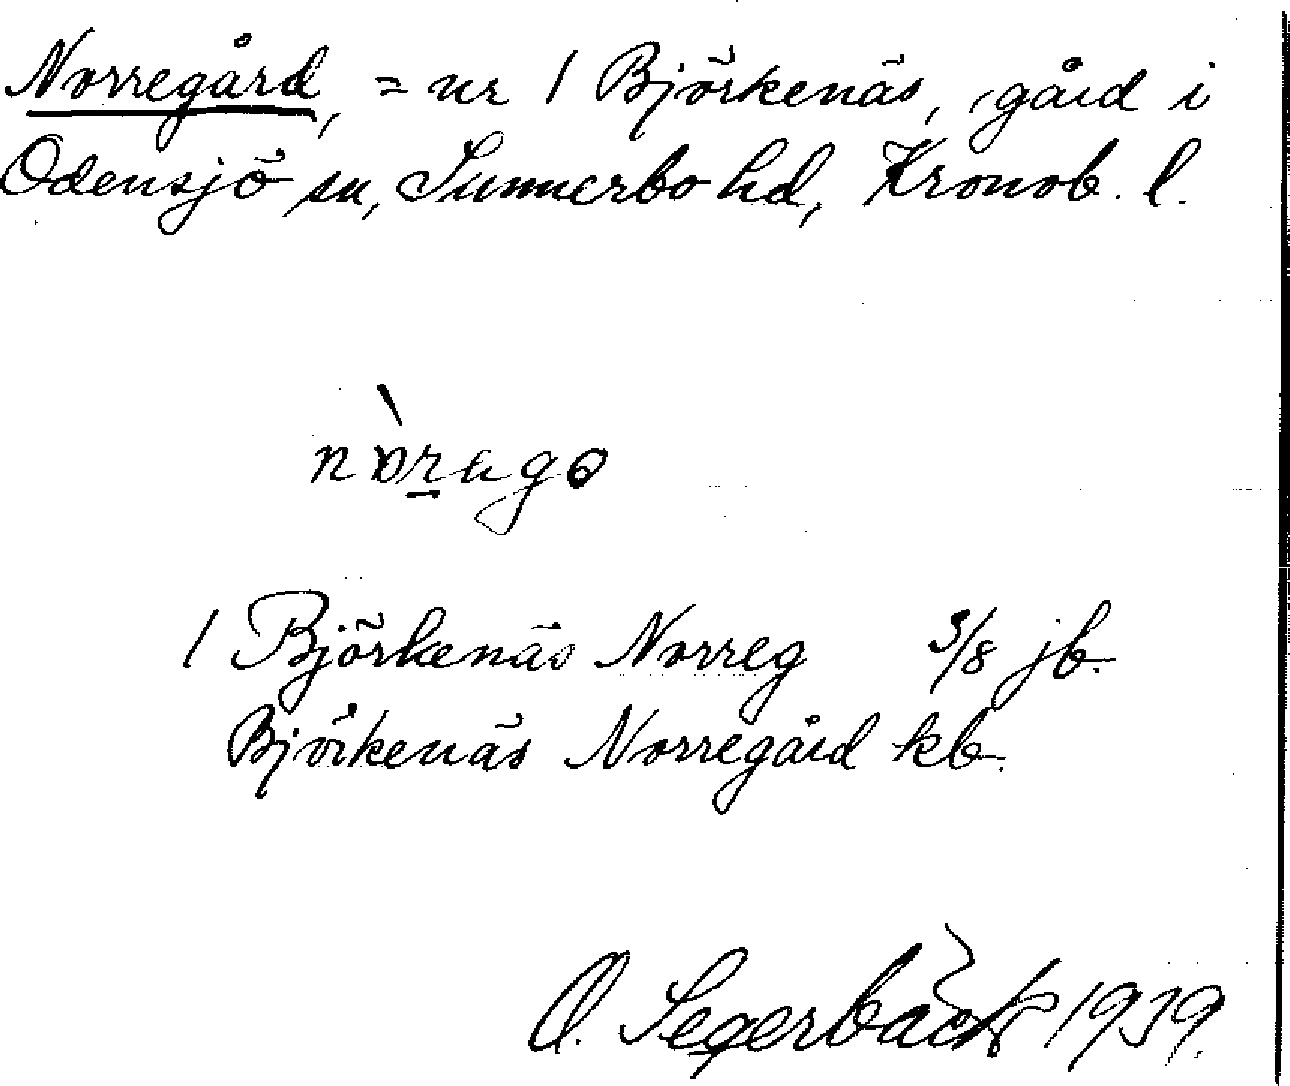 Norregård, = nr 1 Björkenäs, gård i
Odensjö sn, Sunnerbo hd, Kronob. l.
nòrago
1 Björkenäs Norreg 3/8 jb.
Björkenäs Norregård kb.
O. Segerbäck 1939.